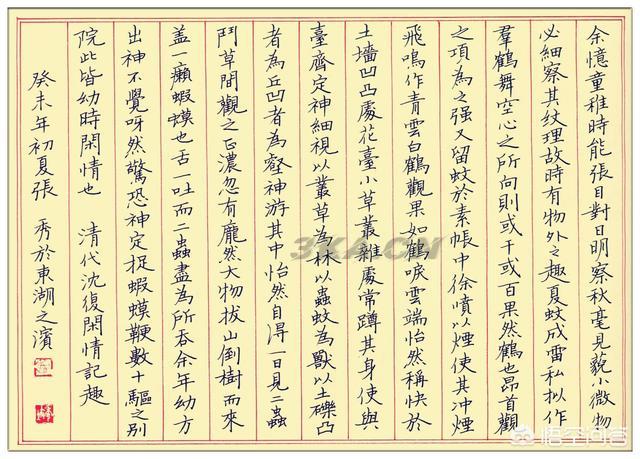 余憶童稚時能張目對日明察秋毫見藐小微物
必細察其紋理故時有物外之趣夏蚊成雷私拟作
羣鶴舞空心之所向則或千或百果然鶴也昂首觀
之項為之强又留蚊於素帳中徐噴以煙使其冲煙
飛鳴作青雲白鶴觀果如鶴唳雲端怡然稱快於
土墻凹凸處花臺小草叢雜處常蹲其身使與
臺齊定神細視以叢草為林以蟲蚊為獸以土礫凸
者為丘凹者為壑神游其中怡然自得一日見二蟲
鬥草間觀之正濃忽有龐然大物拔山倒樹而來
盖一癩蝦蟆也舌一吐而二蟲盡為所吞余年幼方
出神不覺呀然驚恐神定捉蝦蟆鞭數十驅之别
院此皆幼時閑情也 清代沈復閑情記趣
癸未年初夏張 秀於東湖之濱
3XA.CN
悟空问答